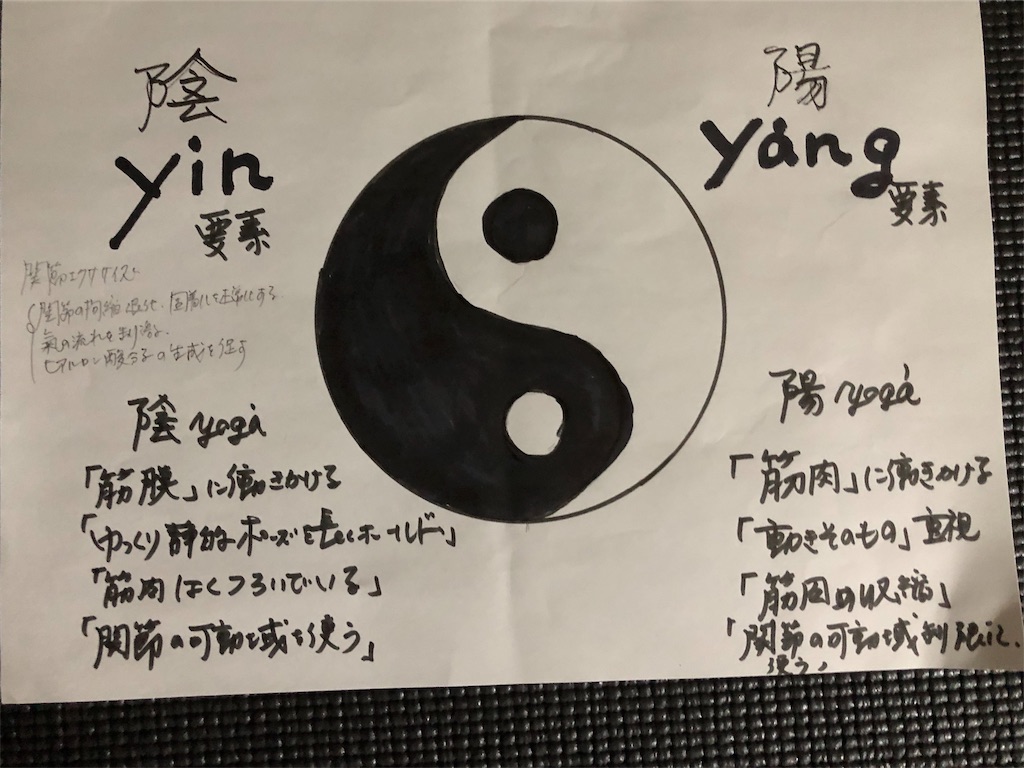 陰
yin
要素
関節エクササイズ
関節の拘縮、退化、固着化を正常化する
氣の流れを刺激
ヒアルロン酸分子の生成を促す
陰 yoga
「筋膜」に働きかける
「ゆっくり静的ポーズを長くホールド」
「筋肉はくつろいでいる」
「関節の可動域を使う」
陽
yang
要素
陽 yoga
「筋肉」に働きかける
「動きそのもの」重視
「筋肉の収縮」
「関節の可動域制限に、
使う」